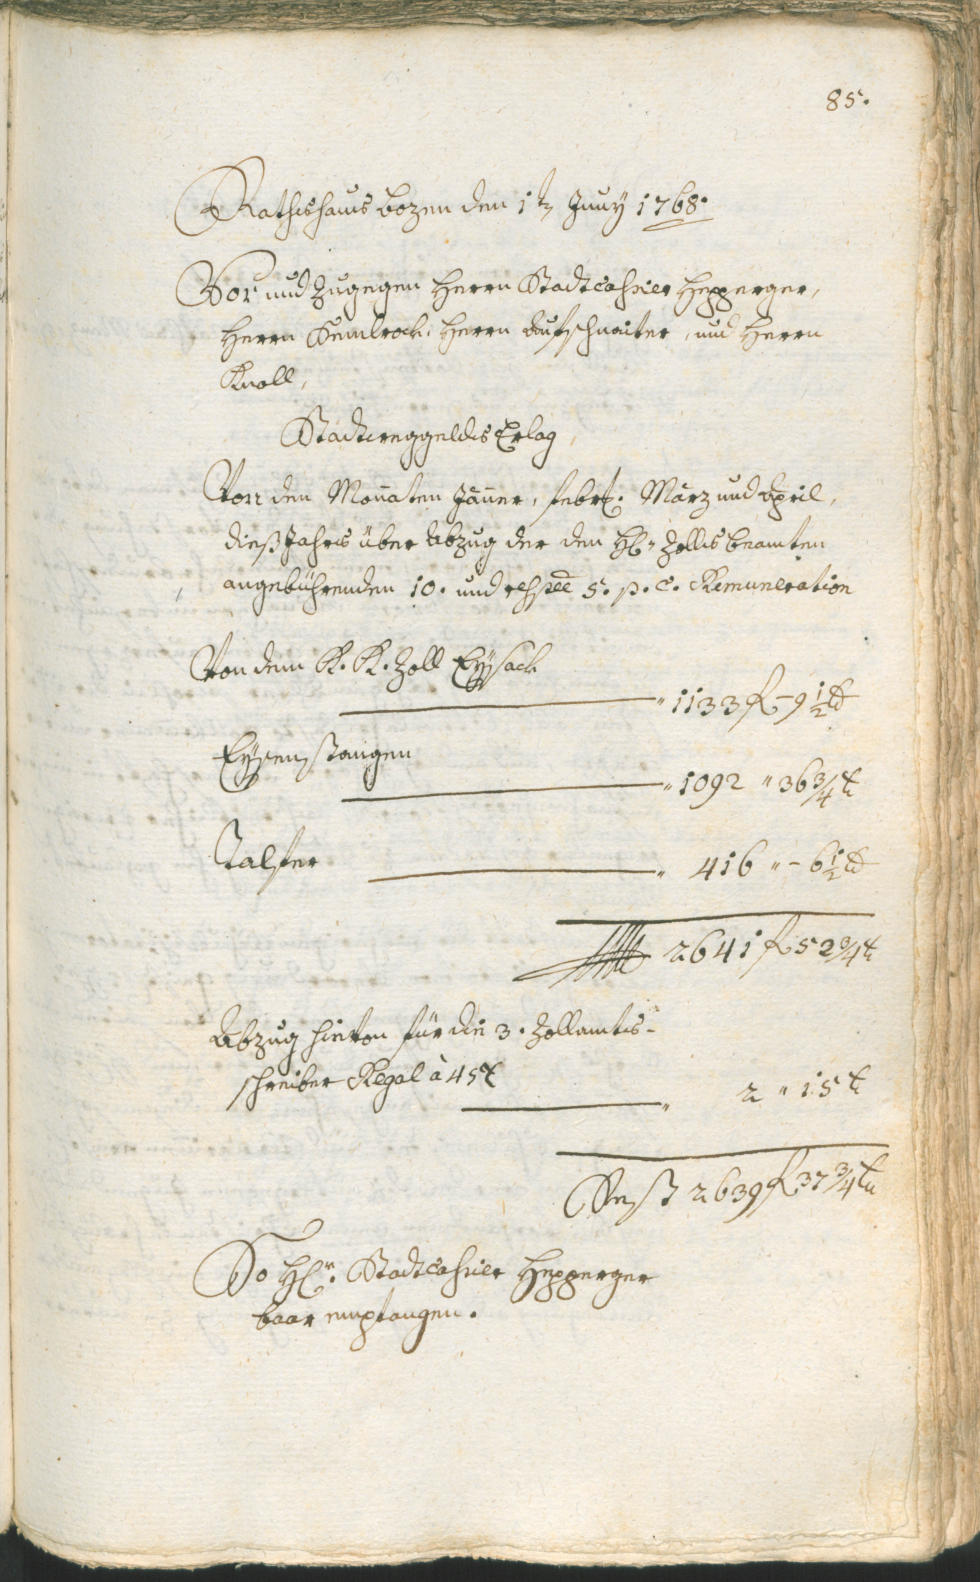 85.
Rathshaus Bozen den 1t Juny 1768.
Vor und zugegen Herrn Stadtcassier Hepperger,
Herrn Kemlrock, Herrn Aufschnaiter, und Herrn
Knoll,
Stadtweggelds Erlag,
Von den Monaten Jäner, Febr. März und April,
dieß Jahrs über Abzug der den H. Zollsbeamten
angebührenden 10. und respec 5. p. C. Remuneration
Von dem K. K. Zoll Eysack
" 1133 f - 9 1/2 x
Eysenstangen
" 1092 " 36 3/4 x
Talfer
" 416 " - 6 1/2 x
2641 f 52 3/4 x
Abzug hievon für die 3. Zollamts-
schreiber Regal à 45 x
" 2 " 15 x
Rest 2639 f 37 3/4 x
So Hr. Stadtcassier Hepperger
baar empfangen.